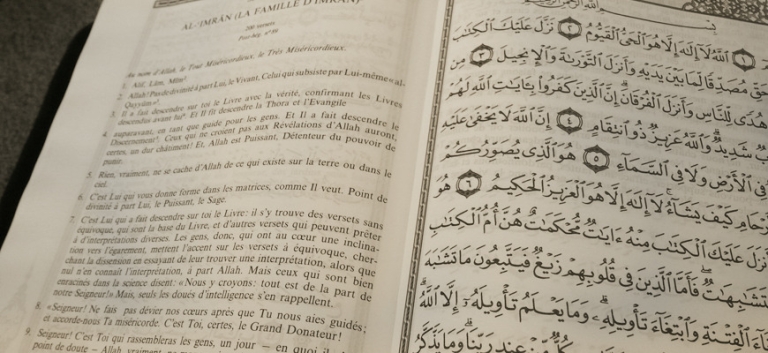 AL-'IMRÂN (LA FAMILLE D'IMRAN)
200 versets
Post-hég. n° 89
Au nom d'Allah, le Tout Miséricordieux, le Très Miséricordieux.
1. Alif, Lâm, Mîm
2. Allah! Pas de divinité à part Lui, le Vivant, Celui qui subsiste par Lui-même «al-
Qayyûm»
3. Il a fait descendre sur toi le Livre avec la vérité, confirmant les Livres
descendus avant lui. Et Il fit descendre la Thora et l'Evangile
4. auparavant, en tant que guide pour les gens. Et Il a fait descendre le
Discernement. Ceux qui ne croient pas aux Révélations d'Allah auront,
certes, un dur châtiment! Et, Allah est Puissant, Détenteur du pouvoir de
punir.
5. Rien, vraiment, ne se cache d'Allah de ce qui existe sur la terre ou dans le
ciel.
6. C'est Lui qui vous donne forme dans les matrices, comme Il veut. Point de
divinité à part Lui, le Puissant, le Sage.
7. C'est Lui qui a fait descendre sur toi le Livre: il s'y trouve des versets sans
équivoque, qui sont la base du Livre, et d'autres versets qui peuvent prêter
à d'interprétations diverses. Les gens, donc, qui ont au cœur une inclina-
tion vers l'égarement, mettent l'accent sur les versets à équivoque, cher-
chant la dissension en essayant de leur trouver une interprétation, alors que
nul n'en connaît l'interprétation, à part Allah. Mais ceux qui sont bien
enracinés dans la science disent: «Nous y croyons: tout est de la part de
notre Seigneur!» Mais, seuls les doués d'intelligence s'en rappellent.
8. «Seigneur! Ne fais pas dévier nos cœurs après que Tu nous aies guidés;
et accorde-nous Ta miséricorde. C'est Toi, certes, le Grand Donateur!
9. Seigneur! C'est Toi qui rassembleras les gens, un jour — en quoi il
point de doute — Allah, vraiment
ٱللَّهُ لَآ إِلَٰهَ إِلَّا هُوَ ٱلْحَىُّ ٱلْقَيُّومُ ٢ نَزَّلَ عَلَيْكَ ٱلْكِتَٰبَ
مُصَدِّقًا لِّمَا بَيْنَ يَدَيْهِ وَأَنزَلَ ٱلتَّوْرَىٰةَ وَٱلْإِنجِيلَ ٣ مِن
هُدًى لِّلنَّاسِ وَأَنزَلَ ٱلْفُرْقَانَ إِنَّ ٱلَّذِينَ كَفَرُوا۟ بِـَٔايَٰتِ ٱللَّهِ لَهُمْ
شَدِيدٌ وَٱللَّهُ عَزِيزٌ ذُو ٱنتِقَامٍ ٤ إِنَّ ٱللَّهَ لَا يَخْفَىٰ عَلَيْهِ
فِى ٱلْأَرْضِ وَلَا فِى ٱلسَّمَآءِ ٥ هُوَ ٱلَّذِى يُصَوِّرُكُمْ
كَيْفَ يَشَآءُ لَآ إِلَٰهَ إِلَّا هُوَ ٱلْعَزِيزُ ٱلْحَكِيمُ ٦ هُوَ
أَنزَلَ عَلَيْكَ ٱلْكِتَٰبَ مِنْهُ ءَايَٰتٌ مُّحْكَمَٰتٌ هُنَّ أُمُّ ٱلْكِتَٰبِ
مُتَشَٰبِهَٰتٌ فَأَمَّا ٱلَّذِينَ فِى قُلُوبِهِمْ زَيْغٌ فَيَتَّبِعُونَ مَا تَشَٰبَهَ
ٱلْفِتْنَةِ وَٱبْتِغَآءَ تَأْوِيلِهِۦ وَمَا يَعْلَمُ تَأْوِيلَهُۥٓ إِلَّا ٱللَّهُ
كُلٌّ مِّنْ عِندِ رَبِّنَا وَمَا يَذَّكَّرُ